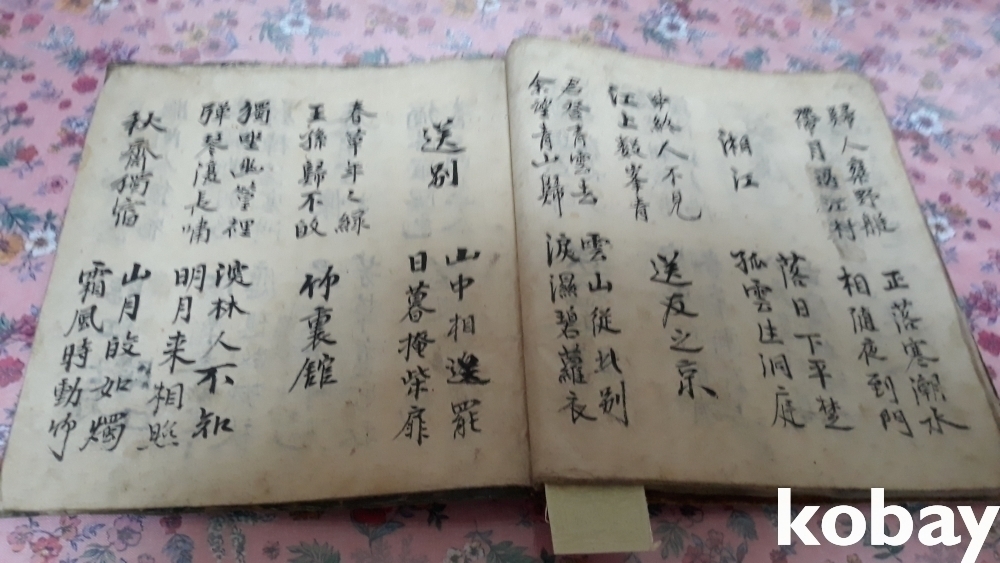 歸人乘野艇
帶月過江村
正落寒潮水
相随夜到門
湘江
落日下平楚
孤雲生洞庭
曲終人不見
江上數峯青
送友之京
君登青雲去
余望青山歸
雲山從此别
淚濕碧蘿衣
送别
山中相送罷
日暮掩柴扉
春草年々綠
王孫歸不皈
竹裏館
獨坐幽篁裡
弾琴復長嘯
深林人不知
明月来相照
秋齋獨宿
山月皎如燭
霜風時動竹
kobay